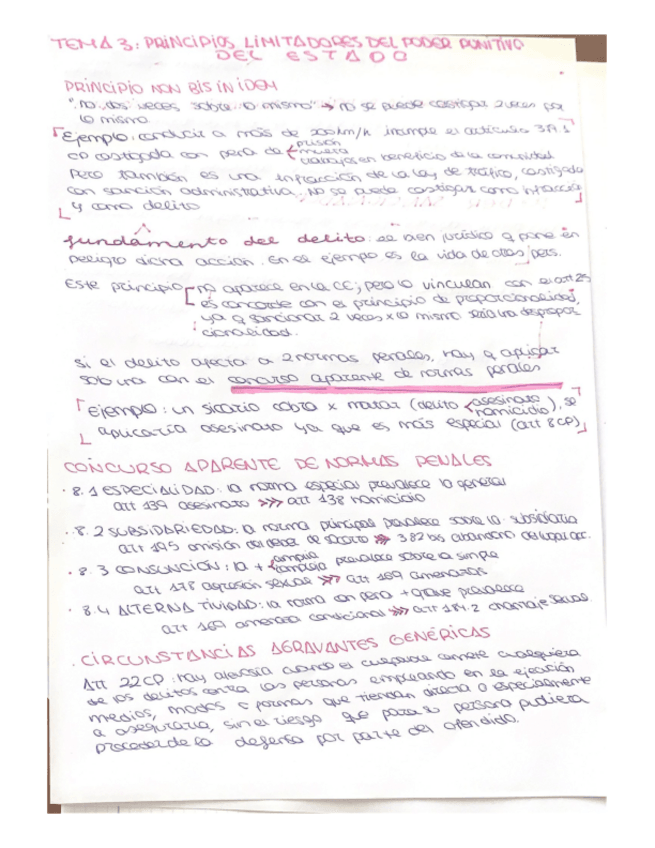 TEMA 3: PRINCIPIOS LIMITADORES DEL PODER PUNITIVO
DEL ESTADO
PRINCIPIO NON BIS IN IDEM
"no dos veces sobre lo mismo" → no se puede castigar 2 veces por
lo mismo
Ejemplo: conducir a más de 200 km/h incumple el artículo 379.1
CP castigada con pena de prisión
multa
trabajos en beneficio de la comunidad
Pero también es una infracción de la ley de tráfico, castigada
con sanción administrativa. No se puede castigar como infracción
y como delito
fundamento del delito: el bien jurídico q pone en
peligro dicha acción. En el ejemplo es la vida de otras pers.
Este principio no aparece en la CE; pero lo vinculan con el art 25
es concorde con el principio de proporcionalidad,
ya q sancionar 2 veces x lo mismo sería una despropor
cionalidad.
Si el delito afecta a 2 normas penales, hay q aplicar
solo una con el concurso aparente de normas penales
Ejemplo: un sicario cobra x matar (delito asesinato
homicidio), se
aplicaría asesinato ya que es más especial (art 8 CP)
CONCURSO APARENTE DE NORMAS PENALES
· 8.1 ESPECIALIDAD: la norma especial prevalece la general
art 139 asesinato >>> art 138 homicidio
· 8.2 SUBSIDARIEDAD: la norma principal prevalece sobre la subsidiaria
art 195 omisión del deber de socorro >>> 382 bis abandono del lugar acc.
· 8.3 CONSUNCIÓN: la + amplia
compleja prevalece sobre la simple
art 178 agresión sexual >>> art 169 amenazas
· 8.4 ALTERNATIVIDAD: la norma con pena + grave prevalece
art 169 amenaza condicional >>> art 184.2 chantaje sexual
· CIRCUNSTANCIAS AGRAVANTES GENÉRICAS
Art 22 CP: hay alevosía cuando el culpable comete cualquiera
de los delitos contra las personas empleando en la ejecución
medios, modos o formas que tiendan directa o especialmente
a asegurarla, sin el riesgo que para su persona pudiera
proceder de la defensa por parte del ofendido.